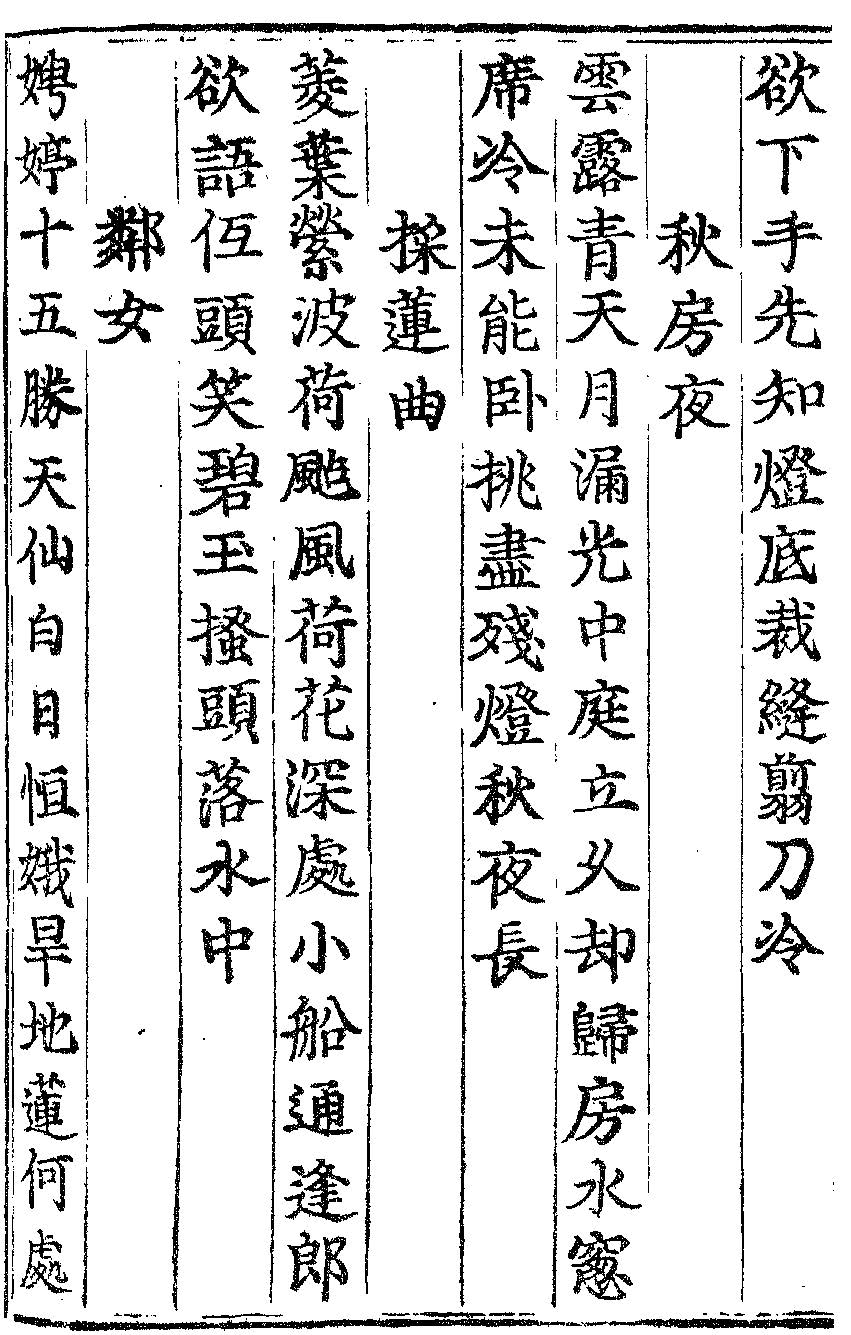 欲下手先知燈底裁縫翦刀冷
秋房夜
雲露青天月漏光中庭立乆却歸房水窻
席冷未能卧挑盡殘燈秋夜長
採蓮曲
菱葉縈波荷颭風荷花深處小船通逢郎
欲語仾頭笑碧玉搔頭落水中
鄰女
娉婷十五勝天仙白日恒娥旱地蓮何處